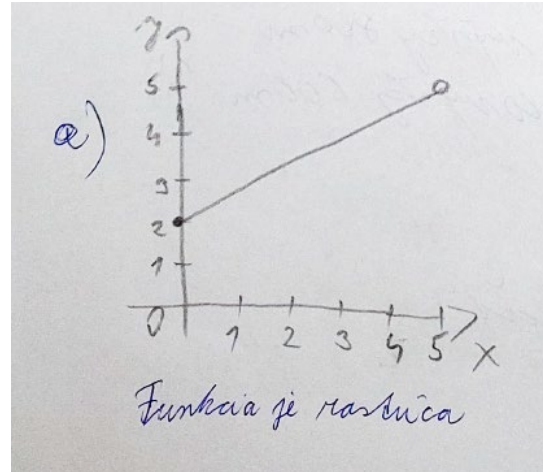 y
5
a)
4
3
2
1
0 1 2 3 4 5 x
Funkcia je rastúca